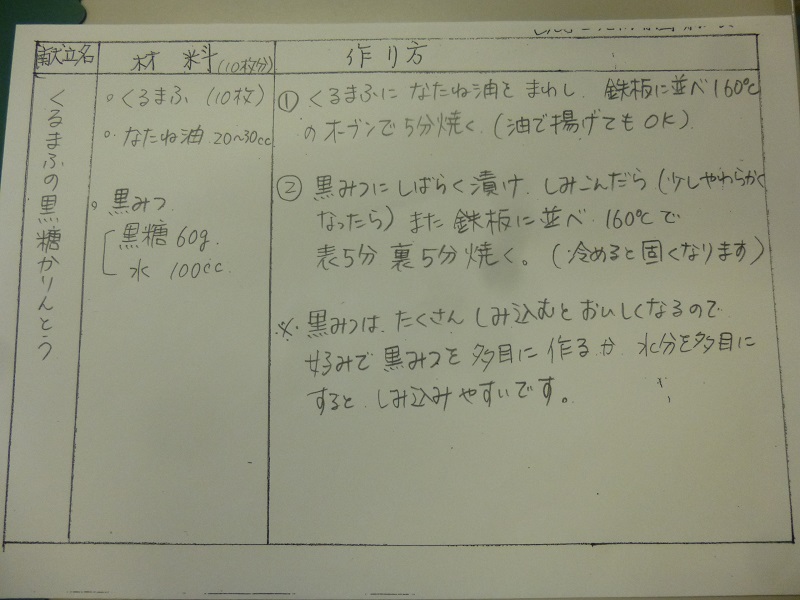 献立名
材料(10枚分)
作り方
くるまふの黒糖かりんとう
くるまふ(10枚)
なたね油 20〜30cc
黒みつ
黒糖 60g
水 100cc
① くるまふに なたね油を まわし、鉄板に並べ160℃
のオーブンで5分焼く。(油で揚げてもOK)
② 黒みつにしばらく漬け、しみこんだら(少しやわらかく
なったら)また 鉄板に並べ 160℃で
表5分 裏5分 焼く。(冷めると固くなります)
※ 黒みつは、たくさん しみ込むと おいしくなるので
好みで 黒みつを 多目に 作るか 水分を多目に
すると、しみ込みやすいです。